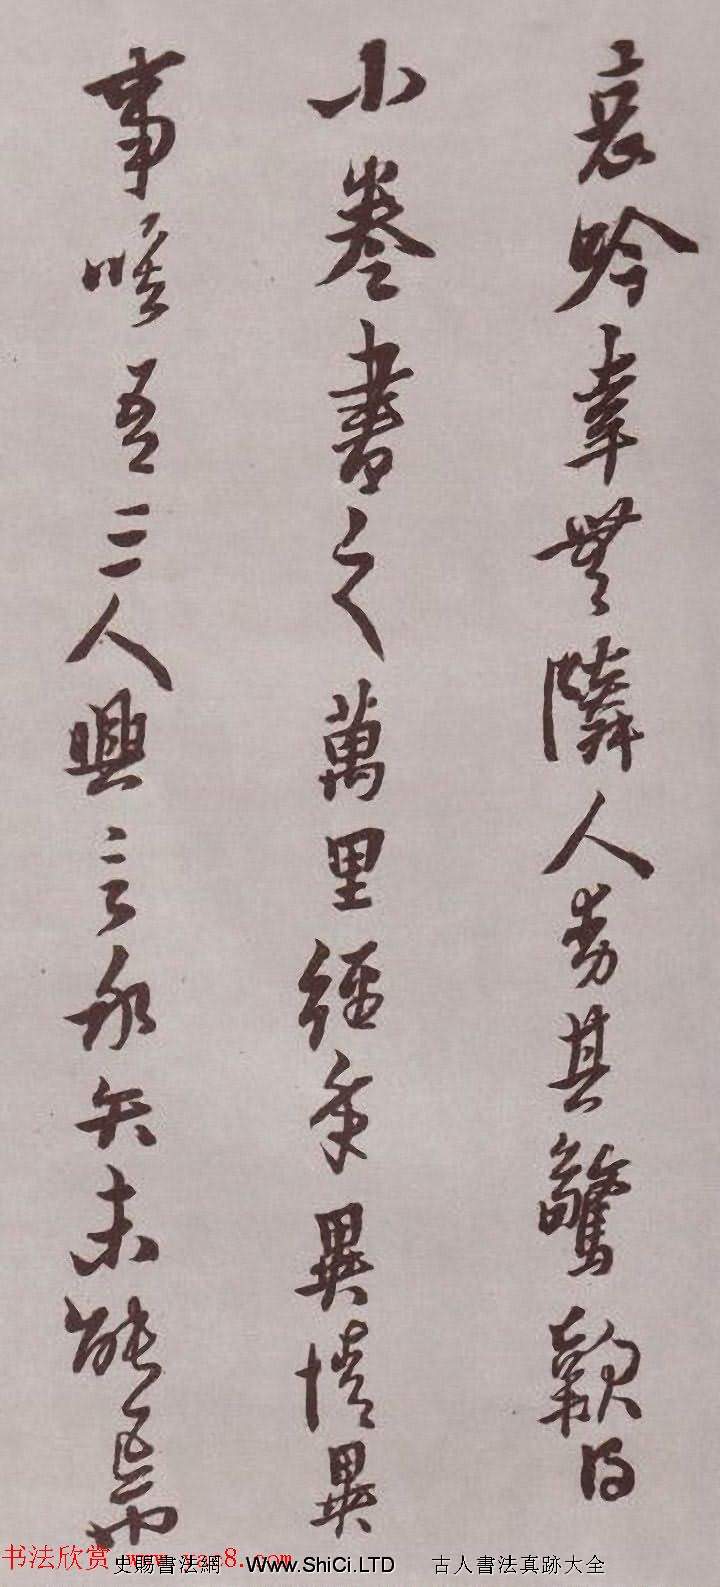 哀吟幸無隣人勞其驚歎
小卷書之萬里經年異情異
事嗟吾三人興言永矢未能
书法欣赏 www.yac8.com
史賜書法網 Www.ShiCi.LTD 古人書法真跡大全